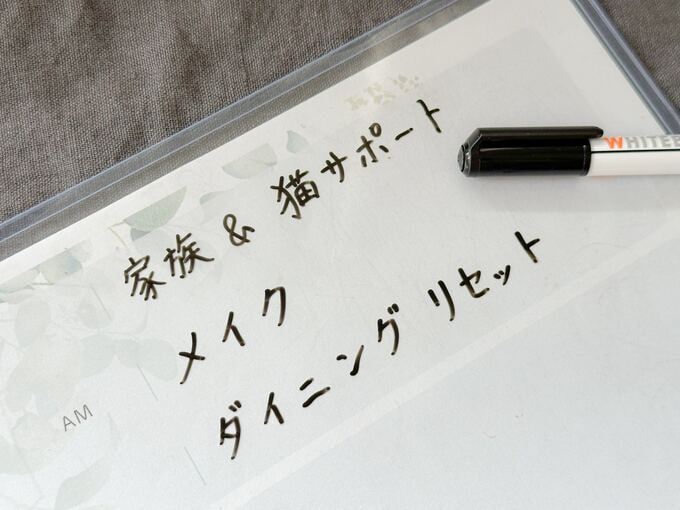 家族 & 猫サポート
メイク
ダイニングリセット
AM
WHITEB